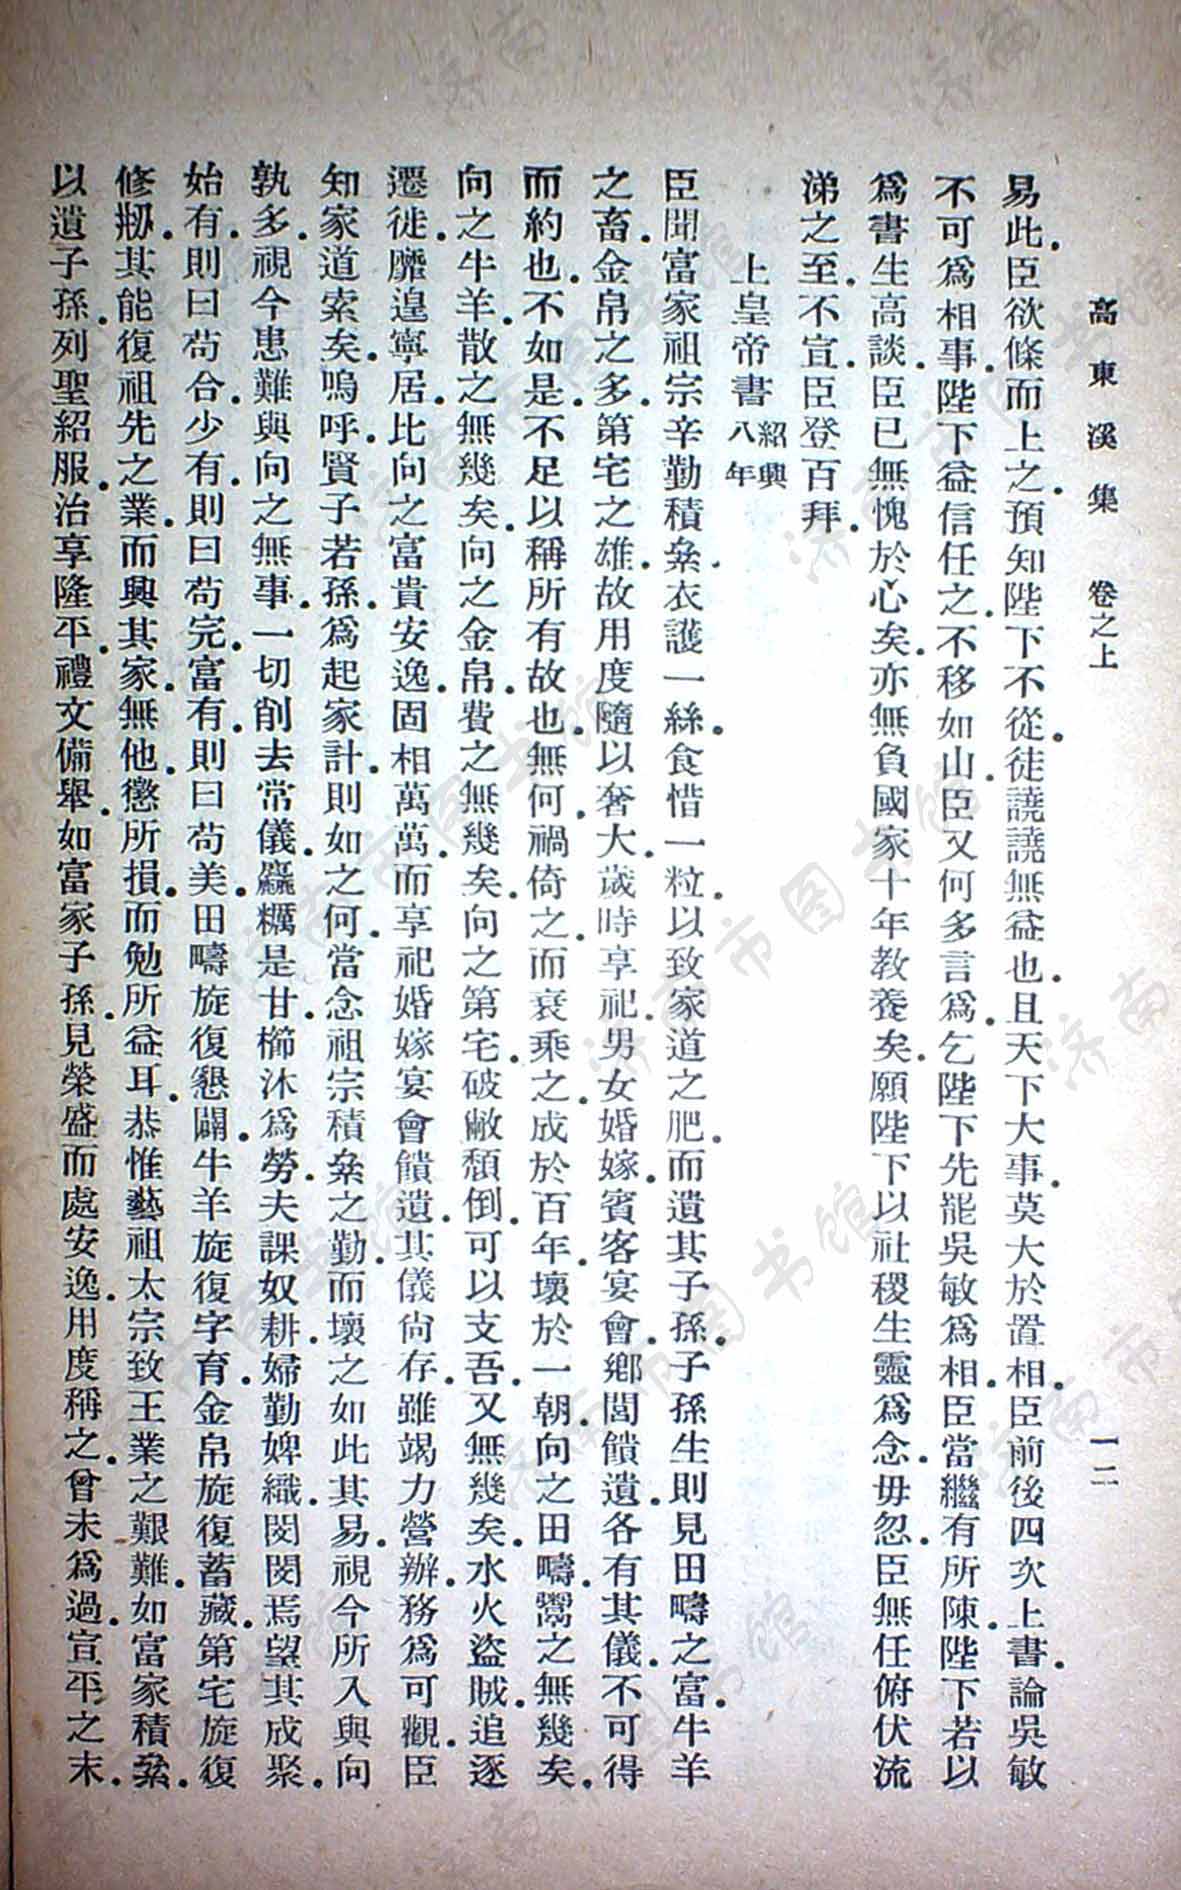 高東溪集　卷之上　一二
易此.臣欲條而上之.預知陛下不從.徒譊譊無益也.且天下大事.莫大於置相.臣前後四次上書.論吳敏
不可爲相事.陛下益信任之.不移如山.臣又何多言爲.乞陛下先罷吳敏爲相.臣當繼有所陳.陛下若以
爲書生高談.臣已無愧於心矣.亦無負國家十年教養矣.願陛下以社稷生靈爲念.毋忽.臣無任俯伏流
涕之至.不宣.臣登百拜.
上皇帝書紹興八年
臣聞富家祖宗辛勤積絫.衣護一絲.食惜一粒.以致家道之肥.而遺其子孫.子孫生則見田疇之富.牛羊
之畜.金帛之多.第宅之雄.故用度隨以奢大.歲時享祀.男女婚嫁.賓客宴會.鄉閭饋遺.各有其儀.不可得
而約也.不如是.不足以稱所有故也.無何.禍倚之.而衰乘之.成於百年.壞於一朝.向之田疇.鬻之無幾矣.
向之牛羊.散之無幾矣.向之金帛.費之無幾矣.向之第宅.破敝頹倒.可以支吾.又無幾矣.水火盜賊.追逐
遷徙.靡遑寧居.比向之富貴安逸.固相萬萬.而享祀婚嫁宴會饋遺.其儀尙存.雖竭力營辦.務爲可觀.臣
知家道索矣.嗚呼.賢子若孫.爲起家計.則如之何.當念祖宗積絫之勤.而壞之如此其易.視今所入與向
孰多.視今患難與向之無事.一切削去常儀.麤糲是甘.櫛沐爲勞.夫課奴耕.婦勤婢織.閔閔焉望其成聚.
始有.則曰苟合.少有.則曰苟完.富有.則曰苟美.田疇旋復懇闢.牛羊旋復字育.金帛旋復蓄藏.第宅旋復
修剏.其能復祖先之業.而興其家.無他.懲所損.而勉所益耳.恭惟藝祖太宗致王業之艱難.如富家積絫.
以遺子孫.列聖紹服.治享隆平.禮文備舉.如富家子孫.見榮盛而處安逸.用度稱之.曾未爲過.宣平之末.